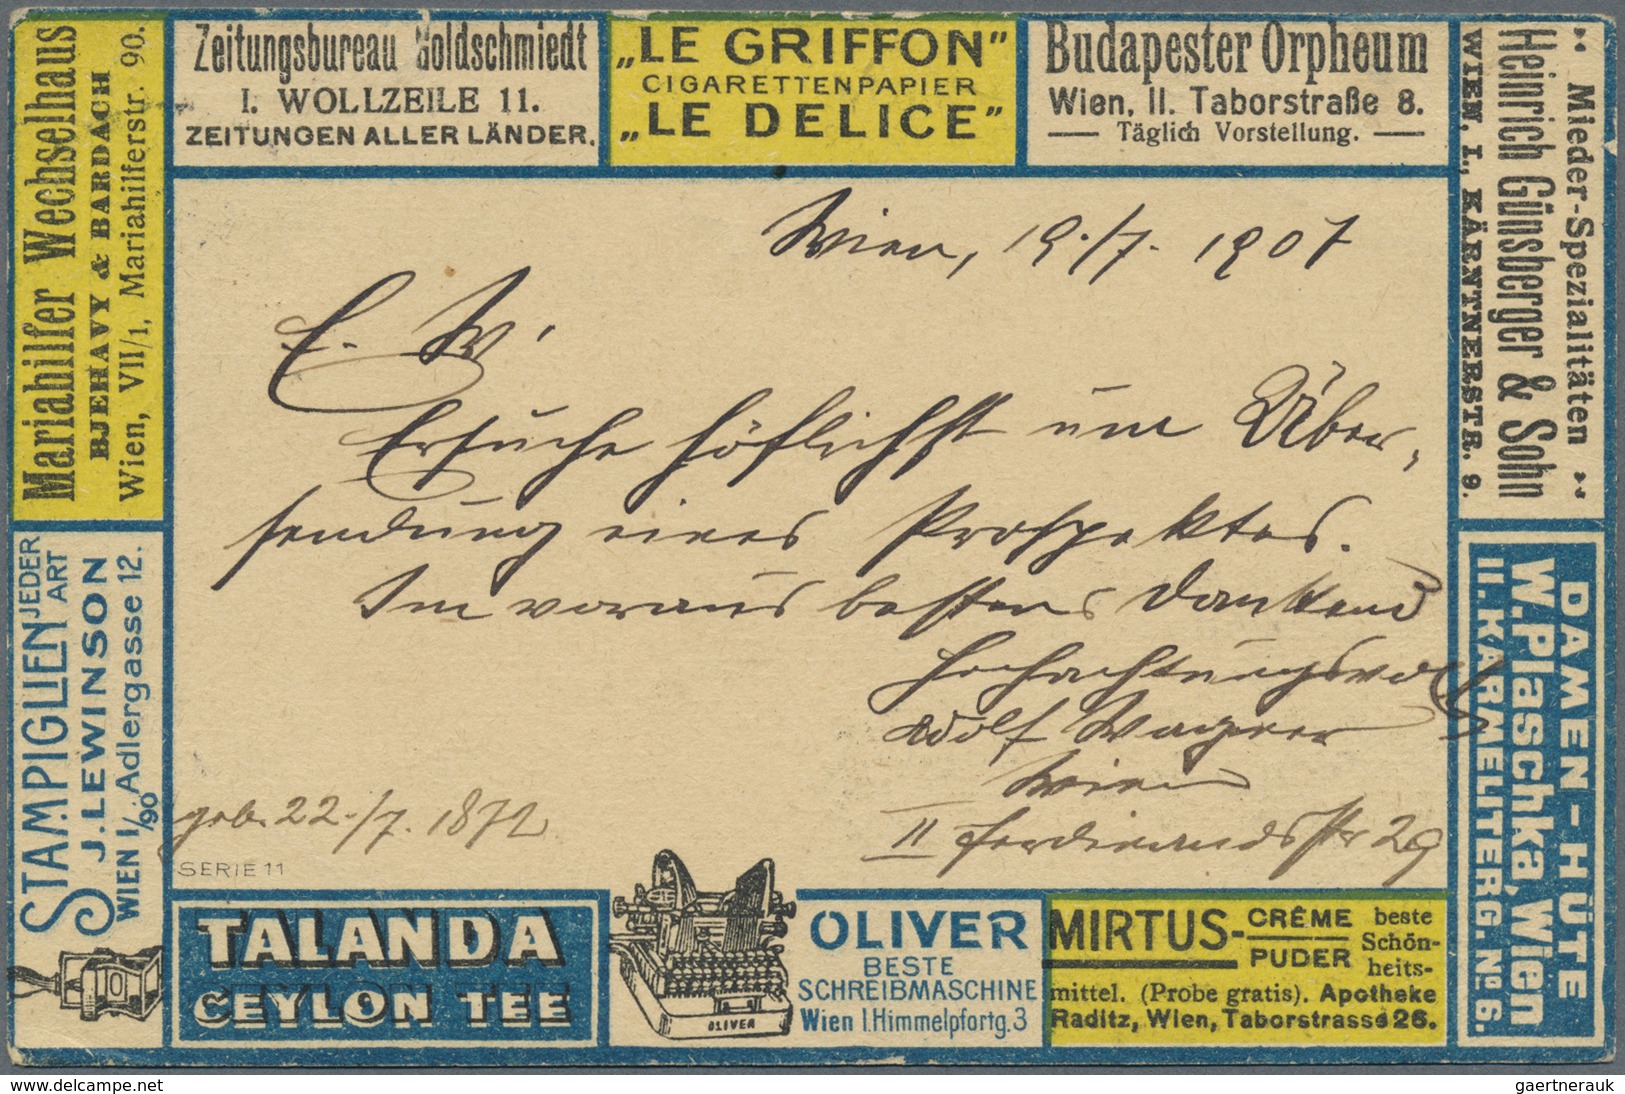 Zeitungsbureau Goldschmiedt
I. WOLLZEILE 11.
ZEITUNGEN ALLER LÄNDER.
„LE GRIFFON"
CIGARETTENPAPIER
„LE DELICE"
Budapester Orpheum
Wien, II. Taborstraße 8.
Täglich Vorstellung.
Mariahilfer Wechselhaus
BJEHAVY & BARDACH
Wien, VII/1, Mariahilferstr. 90.
Mieder-Spezialitäten
Heinrich Günsberger & Sohn
WIEN, I., KÄRNTNERSTR. 9.
Wien, 19./7. 1907
E. W.
Ersuche höflichst um Über-
sendung eines Prospektes.
Im voraus bestens dankend
Hochachtungsvoll
Adolf Wagner
Wien
II Ferdinandsstr 29
geb. 22./7. 1872
SERIE 11
STAMPIGLIEN JEDER ART
J. LEWINSON
WIEN I/90 Adlergasse 12.
DAMEN-HÜTE
W. Plaschka, Wien
II. KARMELITERG. No 6.
TALANDA
CEYLON TEE
OLIVER
OLIVER
BESTE
SCHREIBMASCHINE
Wien I. Himmelpfortg. 3
MIRTUS-CRÊME PUDER beste Schön-
heits-
mittel. (Probe gratis). Apotheke
Raditz, Wien, Taborstrasse 26.
gaertnerauk
Published on delcampe.net